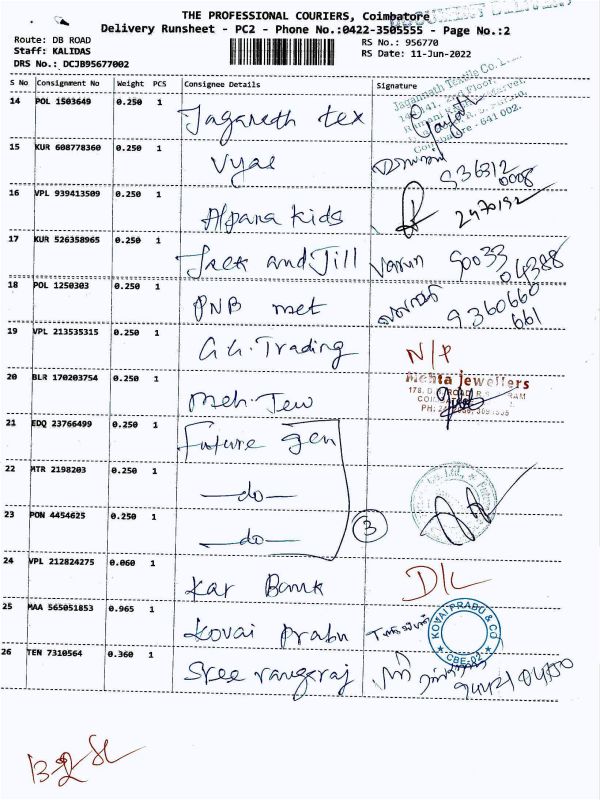 THE PROFESSIONAL COURIERS, Coimbatore
Delivery Runsheet - PC2 - Phone No.:0422-3505555 - Page No.:2
Route: DB ROAD
RS No.: 956770
Staff: KALIDAS
RS Date: 11-Jun-2022
DRS No.: DCJB95677002
S No Consignment No Weight PCS Consignee Details Signature
14 POL 1503649 0.250 1 Jaganath tex
15 KUR 608778360 0.250 1 Vyas 936312 0008
16 VPL 939413509 0.250 1 Alpana kids 2470192
17 KUR 526358965 0.250 1 Jack and Jill Varun 90033 04388
18 POL 1250303 0.250 1 PNB met 9360660 661
19 VPL 213535315 0.250 1 G.G. Trading N/P
20 BLR 170203754 0.250 1 Meh. Jew
Mehta jewellers
21 EDQ 23766499 0.250 1 Future gen
22 MTR 2198203 0.250 1 —do—
23 PON 4454625 0.250 1 —do— 3
24 VPL 212824275 0.060 1 Kar Bank D/L
25 MAA 565051853 0.965 1 Kovai Prabu
KOVAI PRABU & CO
CBE-02
26 TEN 7310564 0.360 1 Sree rangaraj